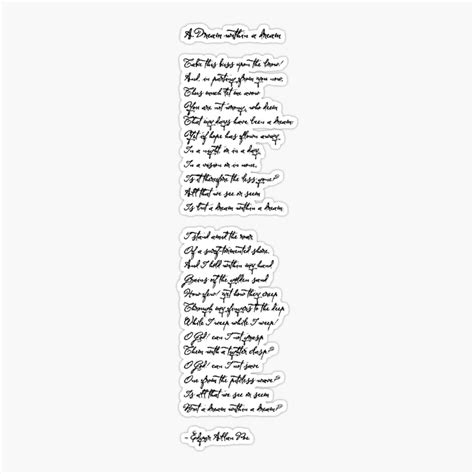 A Dream within a dream
Take this kiss upon the brow!
And, in parting from you now,
Thus much let me avow
You are not wrong, who deem
That my days have been a dream
Yet if hope has flown away
In a night, or in a day,
In a vision, or in none,
Is it therefore the less gone?
All that we see or seem
Is but a dream within a dream
I stand amid the roar
Of a surf-tormented shore,
And I hold within my hand
Grains of the golden sand
How few! yet how they creep
Through my fingers to the deep
While I weep while I weep!
O God! can I not grasp
Them with a tighter clasp?
O God! can I not save
One from the pitiless wave?
Is all that we see or seem
But a dream within a dream?
- Edgar Allan Poe